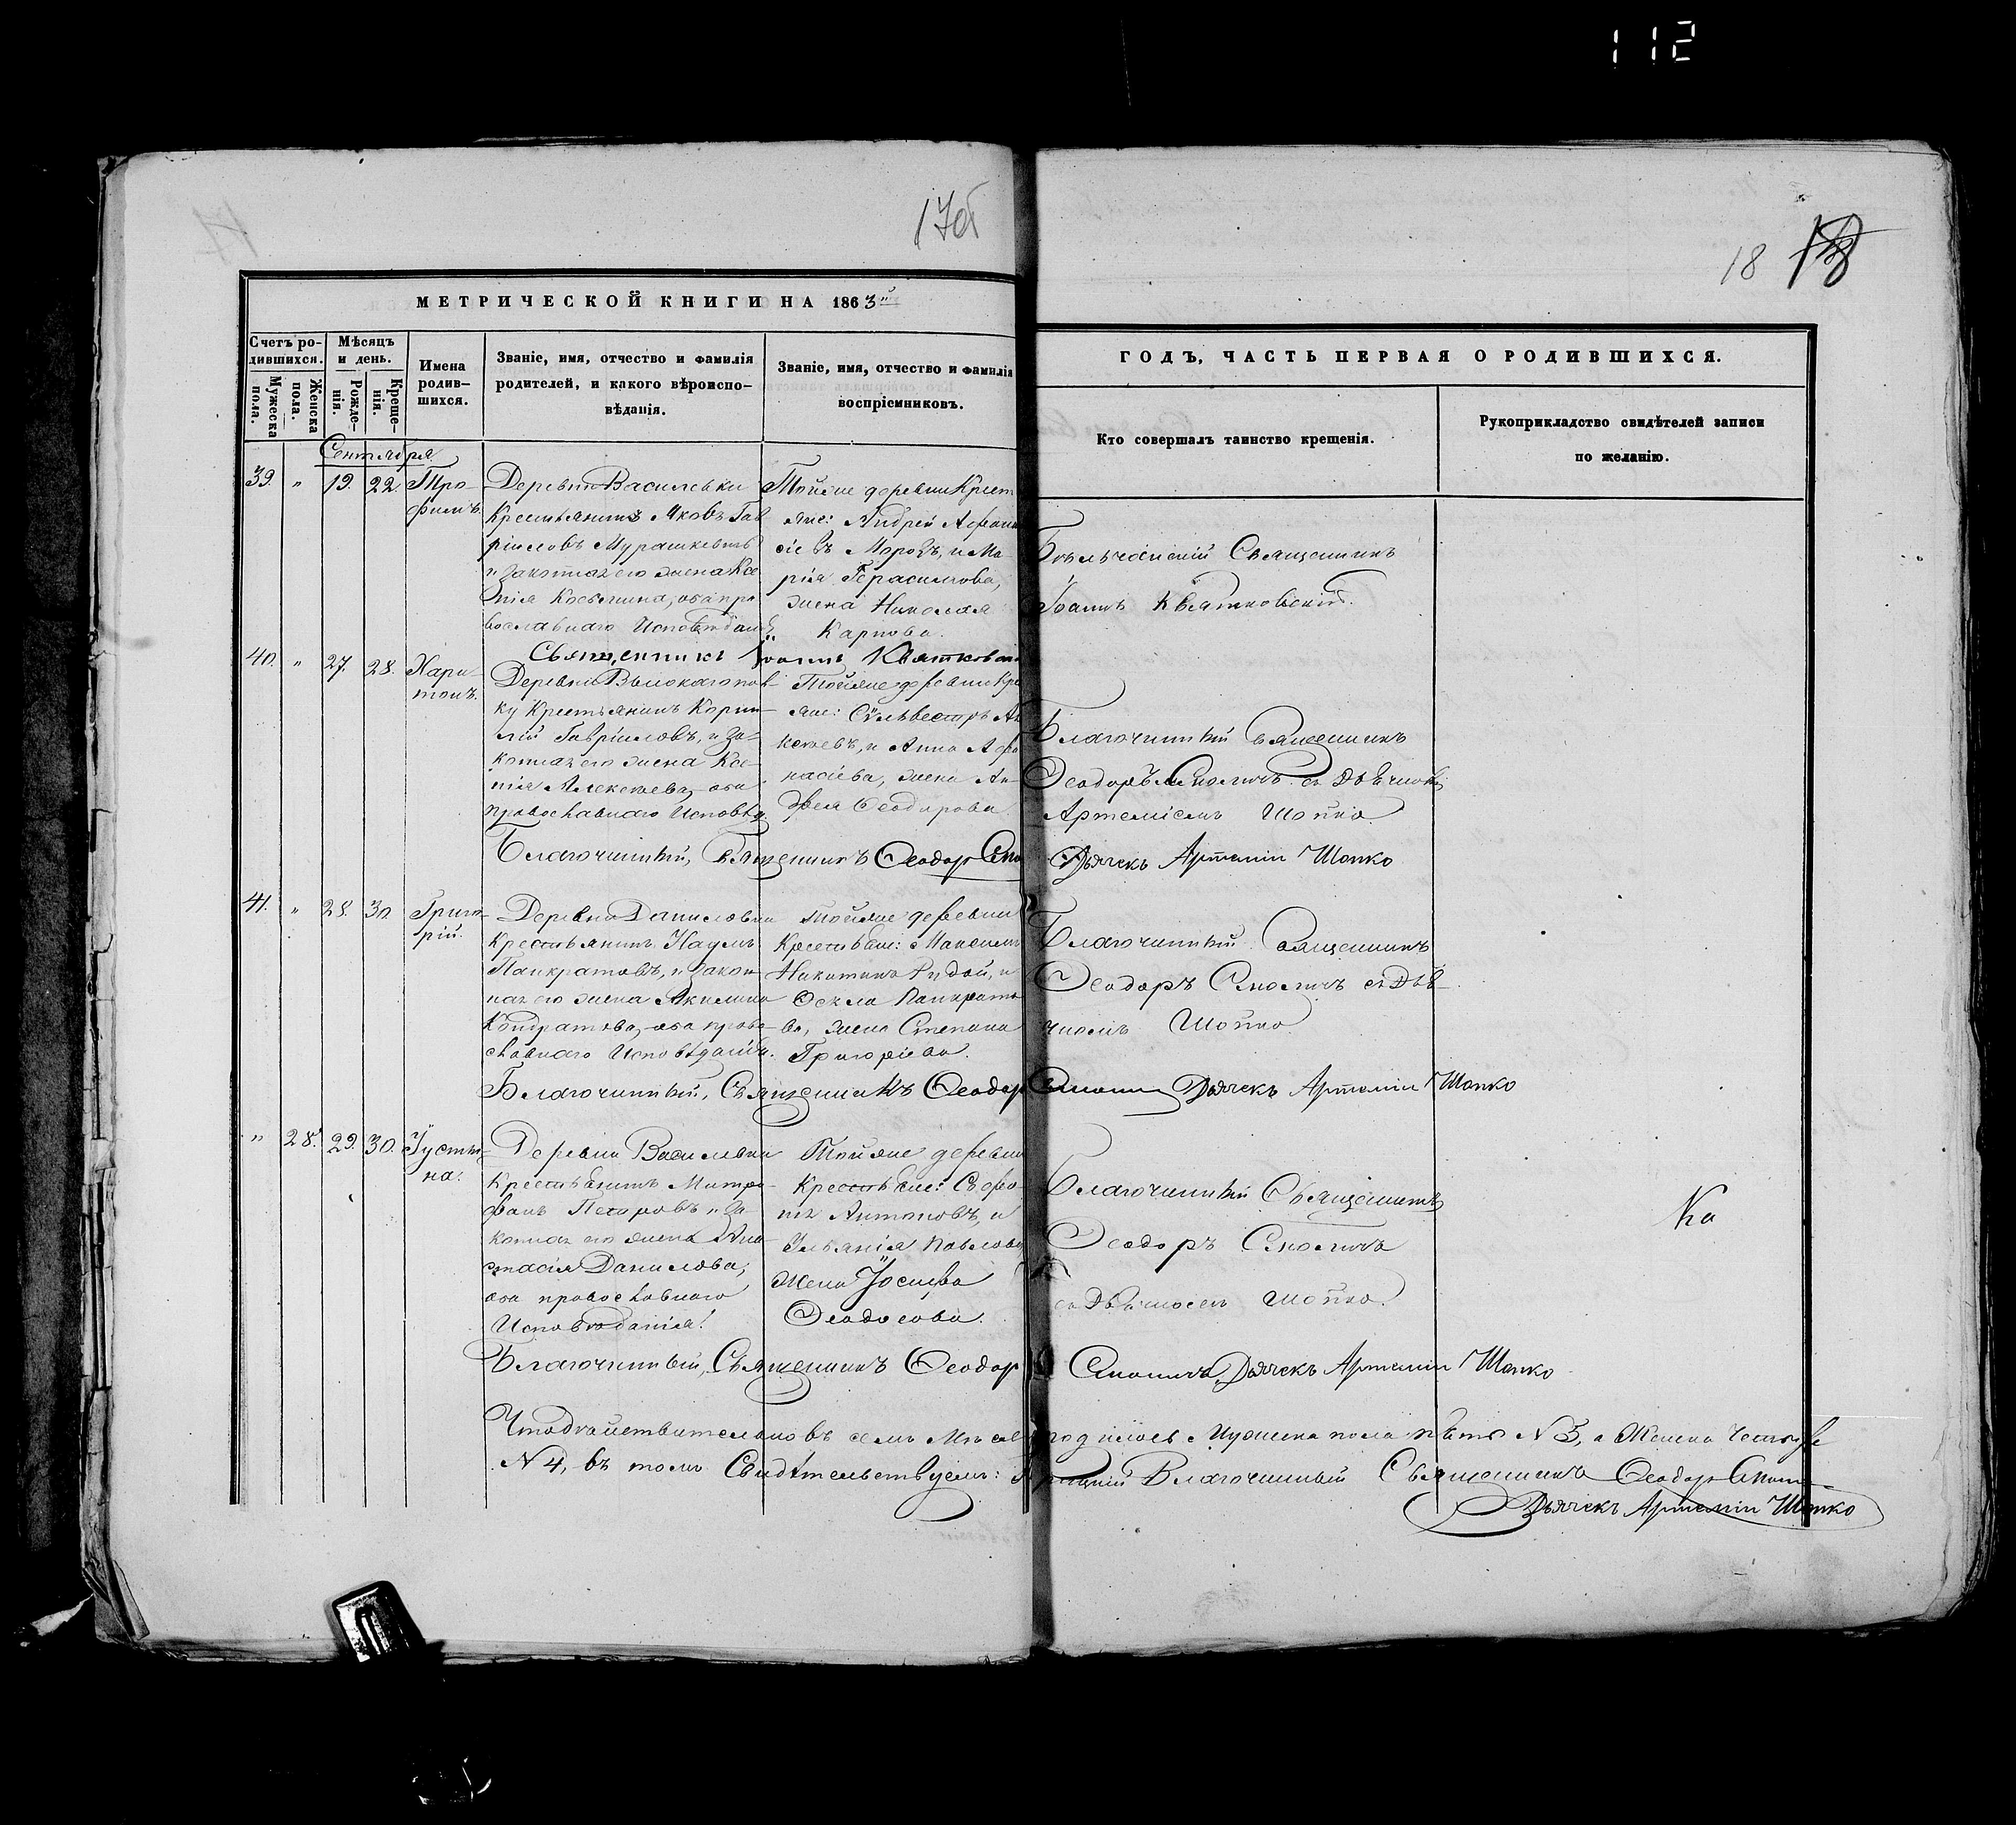 112
17об
18
МЕТРИЧЕСКОЙ КНИГИ НА 1863й
ГОДЪ, ЧАСТЬ ПЕРВАЯ О РОДИВШИХСЯ.
Счетъ ро-
дившихся.
Мужеска
пола.
Женска
пола.
Мѣсяцъ
и день.
Рожде-
нія.
Креще-
нія.
Имена
родив-
шихся.
Званіе, имя, отчество и фамилія
родителей, и какого вѣроиспо-
вѣданія.
Званіе, имя, отчество и фамилія
воспріемниковъ.
Кто совершалъ таинство крещенія.
Рукоприкладство свидѣтелей записи
по желанію.
Сентября
39. " 19. 22. Тро-
фимъ.
Деревни Василевки
Крестьянинъ Яковъ Гав
ріиловъ Мурашкевичъ
и законная его жена Ксе
нія Косьмина, оба пра
вославнаго Исповѣдані
Тойже деревни Крест
яне: Андрей Афана
сіевъ Морозъ, и Ма-
рія Герасимова,
жена Николая
Карпова.
Священникъ
Іоаннъ Квятковскій.
Священникъ Іоаннъ Квятковскі
40. " 27. 28. Хари-
тонъ.
Деревни
ку Крестьянинъ Корни-
лій Гавріиловъ, и за-
конная его жена Ксе-
нія Алексеева, оба
православнаго Исповѣд.
Тойже деревни Кре
яне: Сильвестръ Ал
ксеевъ, и Анна Афа
насіева, жена Ан-
дрея Феодорова
Благочинный Священникъ
Феодоръ Смоличъ съ Дьячкомъ
Артеміемъ Шопко
Благочинный, Священникъ Феодор Смо
Дьячекъ Артемій Шопко
41. " 28. 30. Григо-
рій.
Деревни Даниловки
Крестьянинъ Наумъ
Панкратовъ, и закон-
ная его жена Акилина
Кондратова, оба право-
славнаго Исповѣданія.
Тойже деревни
Крестьяне: Максимъ
Никитинъ и
Фекла Панкрато
ва, жена Степана
Григоріева.
Благочинный Священникъ
Феодоръ Смоличъ съ Дья-
чкомъ Шопко
Благочинный, Священникъ Феодор Смолич Дьячекъ Артемій Шопко
" 28. 29. 30. Іусти-
на.
Деревни Василевки
Крестьянинъ Митро-
фанъ Петровъ и за
конная его жена Ана-
стасія Данилова,
оба православнаго
Исповѣданія.
Тойже деревни
Крестьяне: Софо-
нъ Антоновъ, и
Ульянія Павлова
жена Іосифа
Феодосова.
Благочинный Священникъ
Феодоръ Смоличъ
съ Дьячкомъ Шопко.
Благочинный, Священникъ Феодор Смоличъ Дьячекъ Артемій Шопко
Что действительно въ семъ Месяцѣ родилось Мужеска пола пять N 5, а Женска Четыре
N 4, въ томъ Свидѣтельствуемъ: Благочинный Священникъ Феодор Смолич
Дьячекъ Артемій Шопко